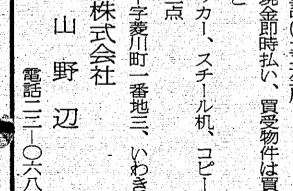 現金即時払い、買受物件は買
ッカー、スチール机、コピー
点
字菱川町一番地三、いわき
株式会社
山野辺
電話二三―〇六八